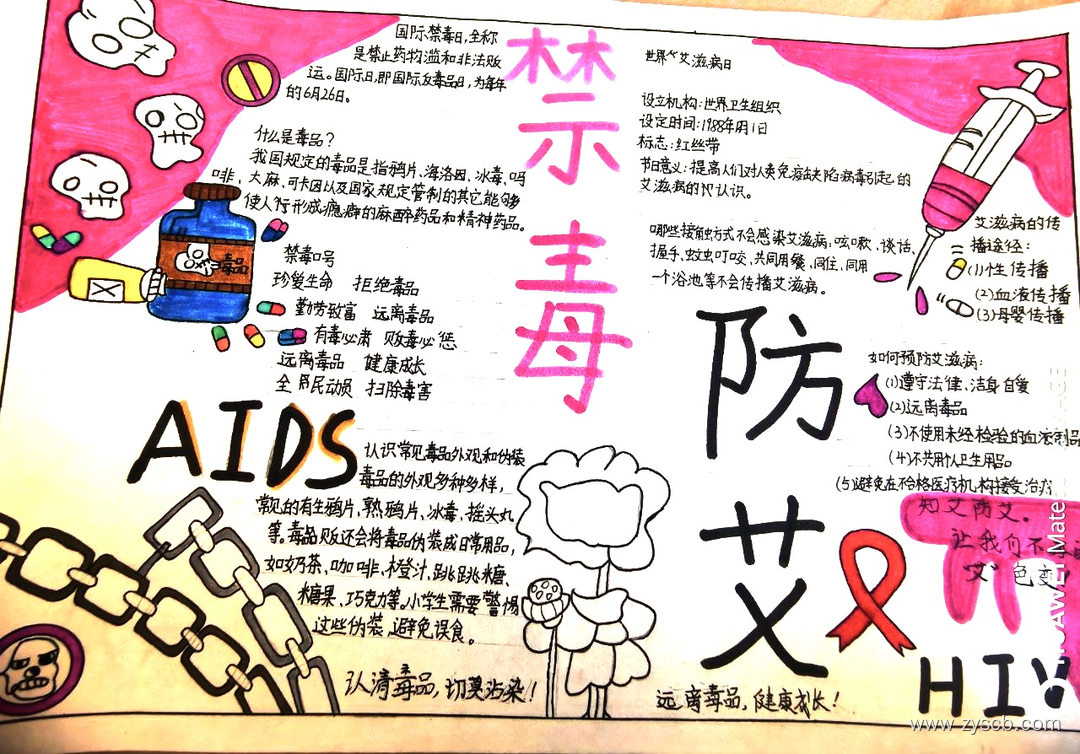 国际禁毒日,全称
是禁止药物滥和非法贩
运。国际日,即国际反毒品日,为每年
的6月26日。
什么是毒品?
我国规定的毒品是指鸦片、海洛因、冰毒、吗
啡、大麻、可卡因以及国家规定管制的其它能够
使人行形成瘾癖的麻醉药品和精神药品。
毒品
禁毒口号
珍爱生命 拒绝毒品
勤劳致富 远离毒品
有毒必肃 贩毒必惩
远离毒品 健康成长
全民动员 扫除毒害
禁毒
AIDS
认识常见毒品外观和伪装
毒品的外观多种多样,
常见的有生鸦片,熟鸦片,冰毒,摇头丸
等。毒品贩还会将毒品伪装成日常用品,
如奶茶、咖啡、橙汁、跳跳糖、
糖果、巧克力等。小学生需要警惕
这些伪装,避免误食。
认清毒品,切莫沾染!
世界艾滋病日
设立机构:世界卫生组织
设定时间:1988年1日
标志:红丝带
节日意义:提高人们对人类免疫缺陷病毒引起的
艾滋病的认识。
哪些接触方式不会感染艾滋病:咳嗽、谈话、
握手、蚊虫叮咬、共同用餐、同住、同用
一个浴池等不会传播艾滋病。
艾滋病的传
播途径:
(1)性传播
(2)血液传播
(3)母婴传播
防艾
如何预防艾滋病:
(1)遵守法律、洁身自爱
(2)远离毒品
(3)不使用未经检验的血液制品
(4)不共用个人卫生用品
(5)避免在不合格医疗机构接受治疗
知艾防艾。
让我们不
"艾"色变
HIV
远离毒品,健康成长!
AWEI Mate
www.zyscb.com